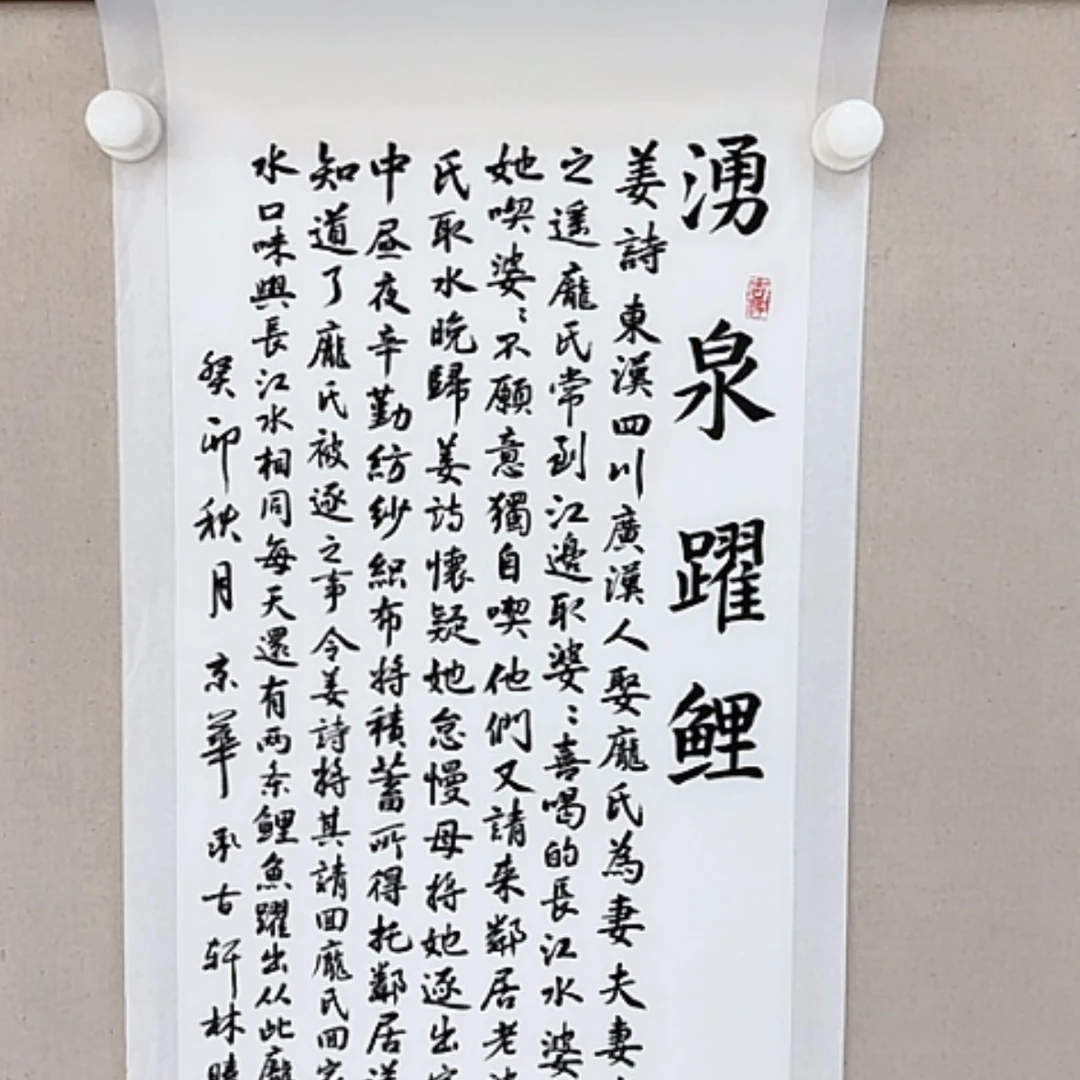 湧泉躍鯉
姜詩東漢四川廣漢人娶龐氏為妻夫妻
之遥龐氏常到江邊取婆〻喜喝的長江水婆
她喫婆〻不願意獨自喫他們又請来鄰居老婆
氏取水晚歸姜詩懷疑她怠慢母将她逐出家
中昼夜辛勤紡紗織布将積蓄所得托鄰居送
知道了龐氏被逐之事令姜詩将其請回龐氏回家
水口味與長江水相同每天還有两条鯉魚躍出从此龐
癸卯秋月京華承古軒林